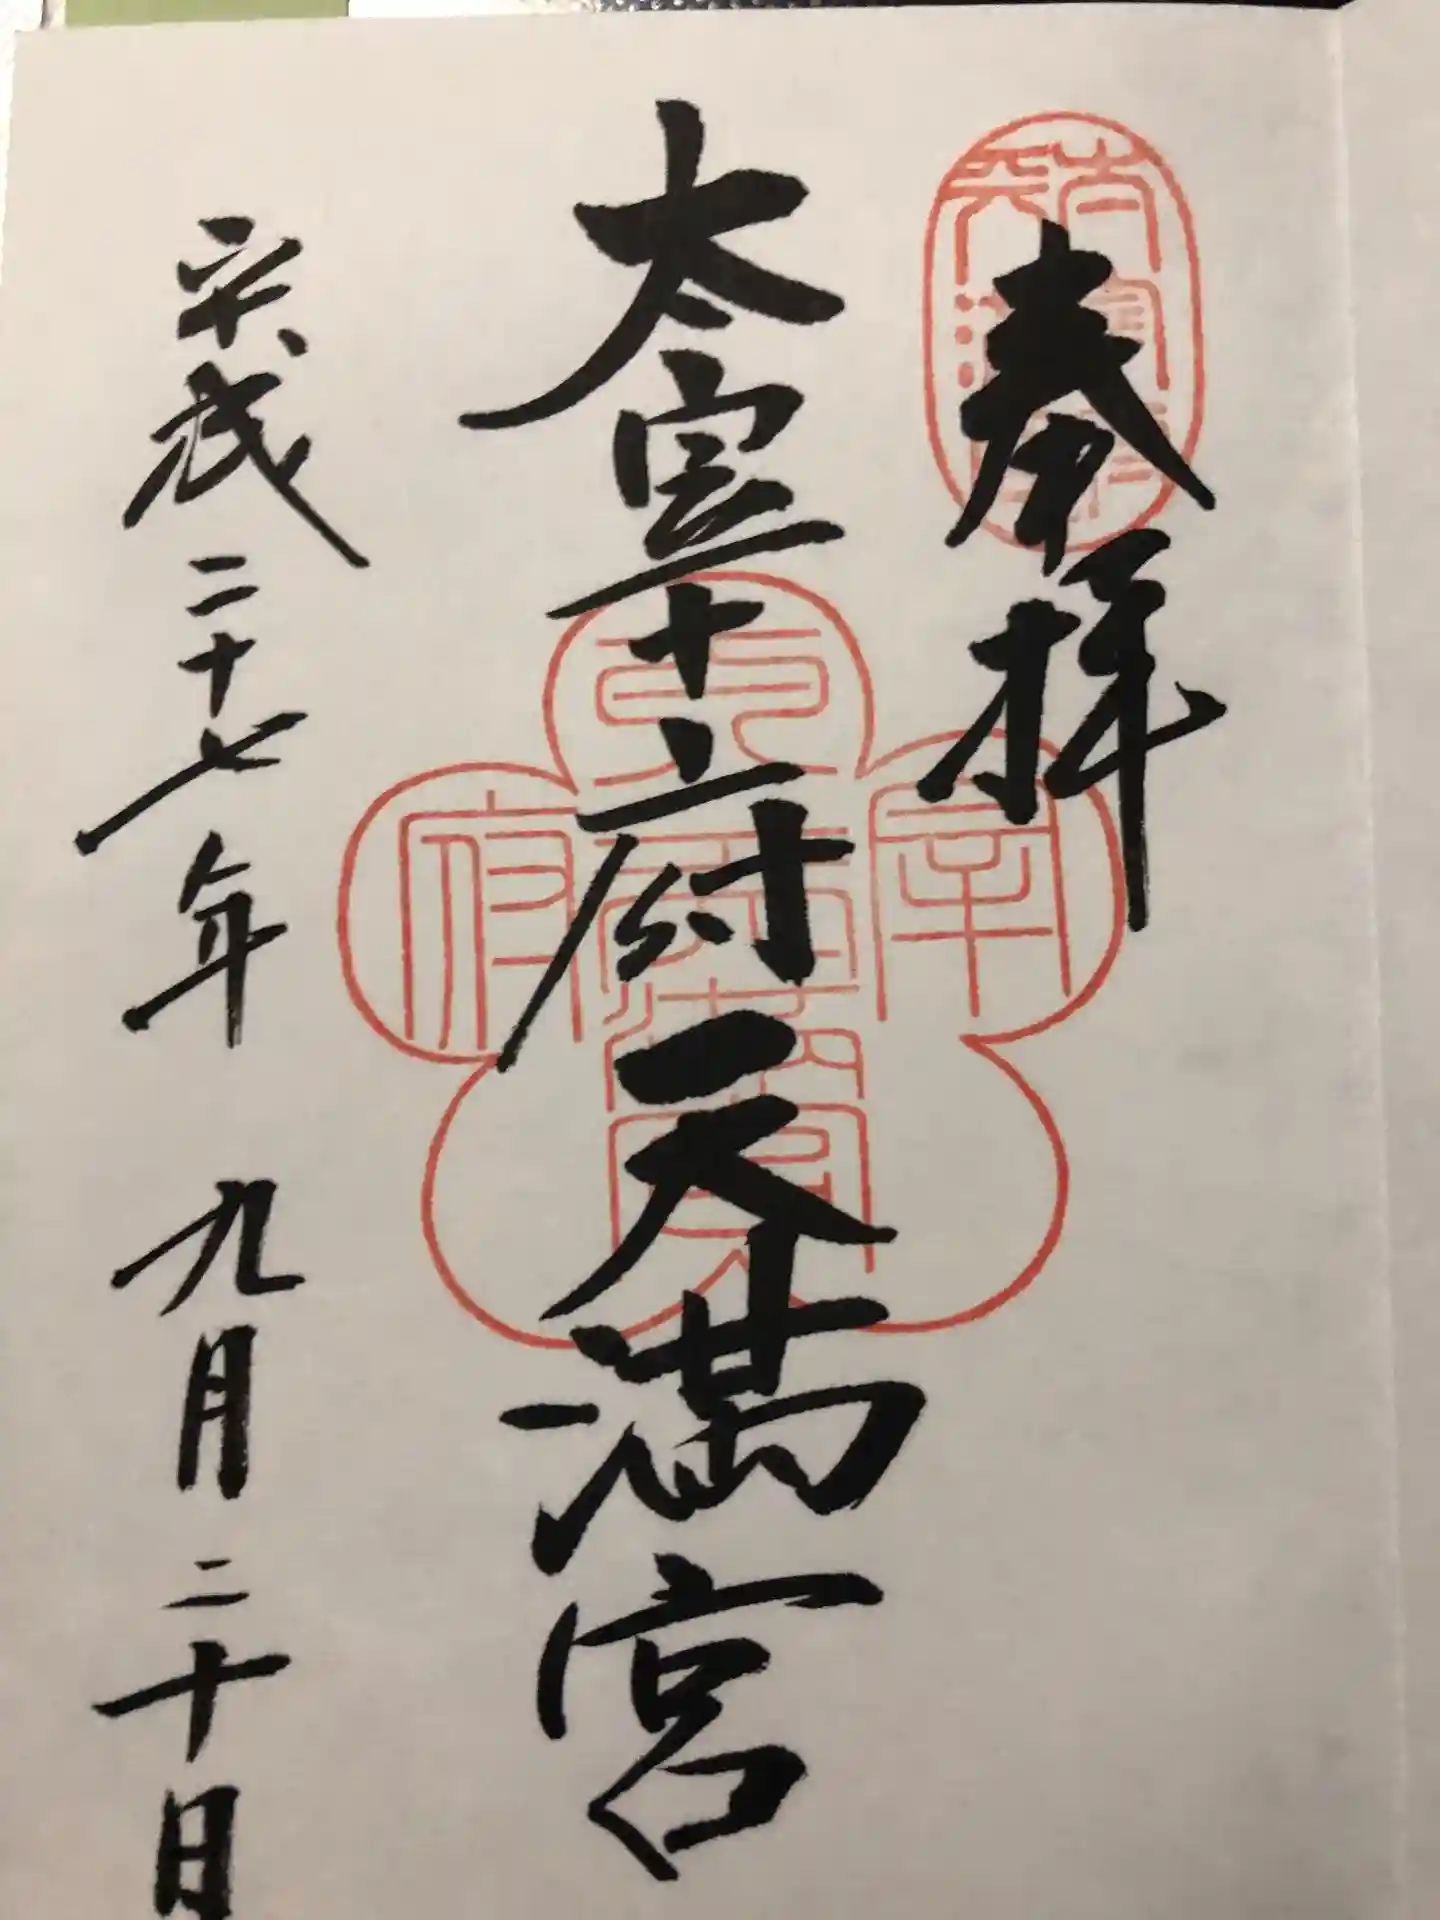 奉拝
太宰府天満宮
平成二十七年 九月二十日